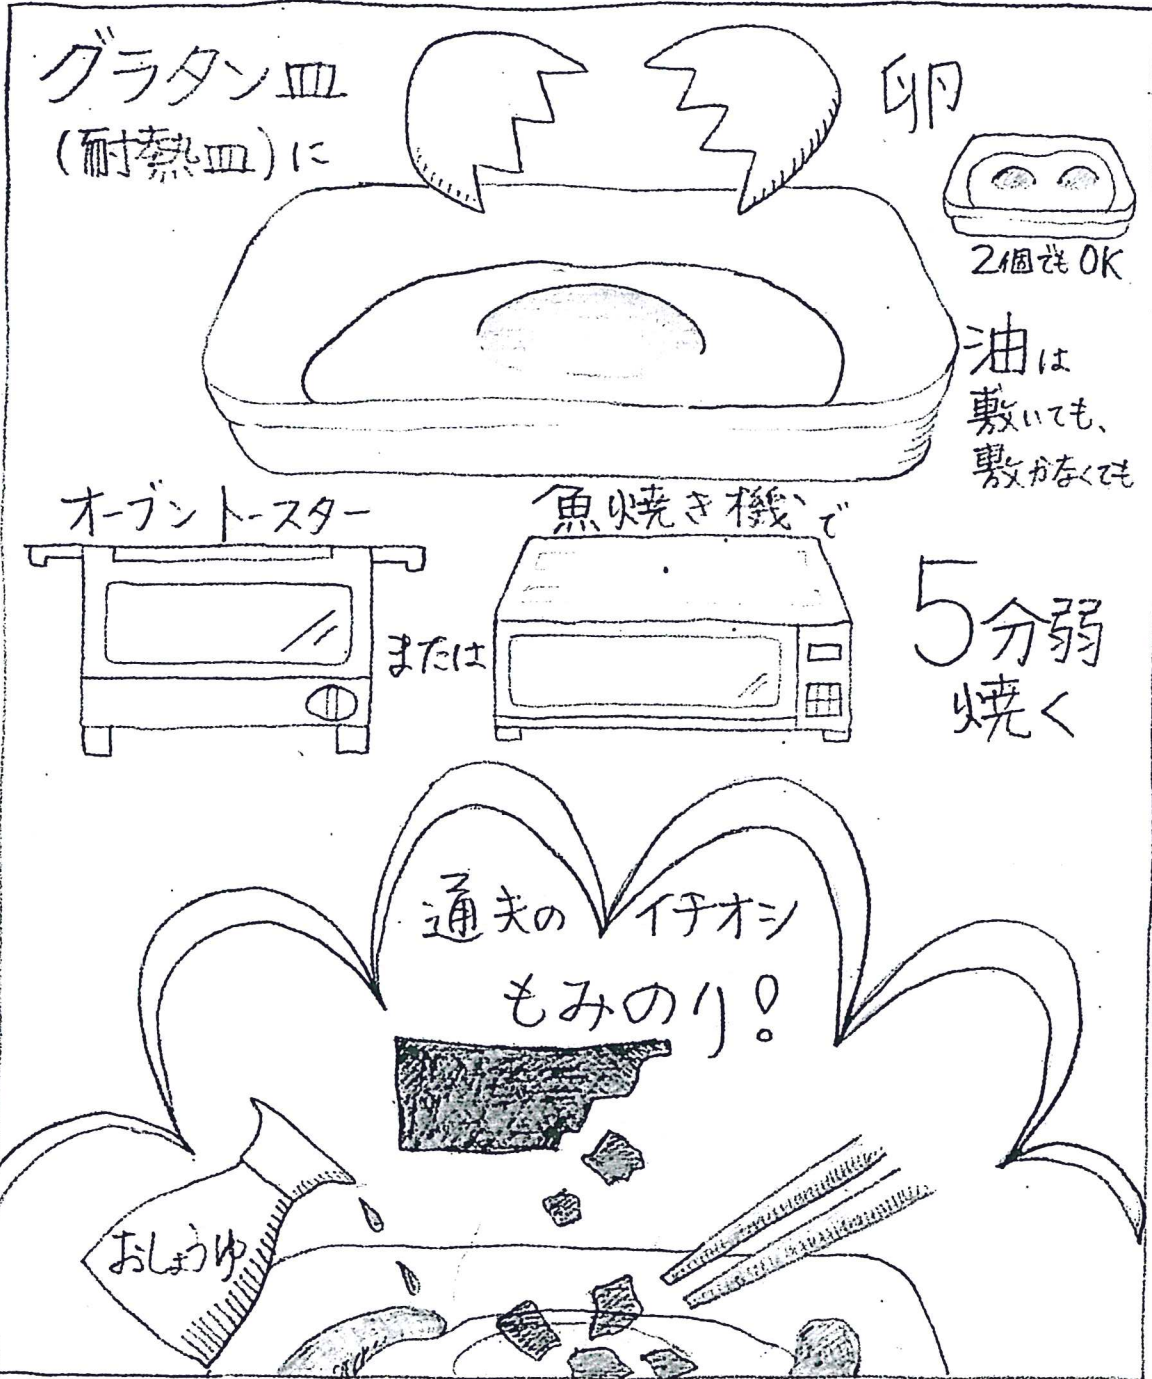 グラタン皿
(耐熱皿)に
卵
2個でもOK
油は
敷いても、
敷かなくても
オーブントースター
または
魚焼き機で
5分弱
焼く
通夫のイチオシ
もみのり!
おしょうゆ